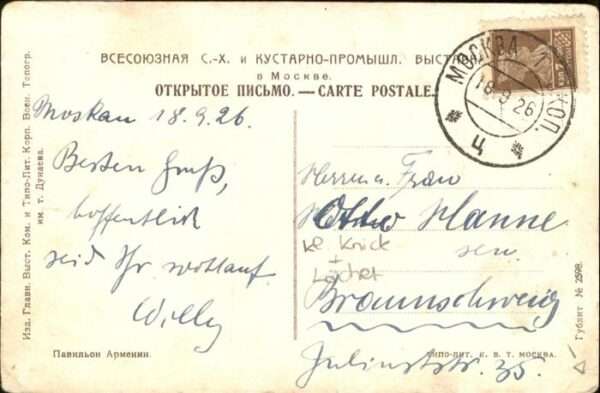 ВСЕСОЮЗНАЯ С.-Х. и КУСТАРНО-ПРОМЫШЛ. ВЫСТ
в Москве.
ОТКРЫТОЕ ПИСЬМО. — CARTE POSTALE.
МОСКВА 1
18 9 26
Ц
Moskau 18.9.26.
Besten Gruß,
hoffentlich
seid Ihr wohlauf.
Willy
Herrn u. Frau
Otto Hanne
sen.
le Knick
+
Löcher
Braunschweig
Juliusstr. 35.
Павильон Армении.
ТИПО-ЛИТ. К. В. Т. МОСКВА.
Изд. Главн. Выст. Ком. и Типо-Лит. Корп. Воен. Топогр.
им. т. Дунаева.
Гублит № 2598.